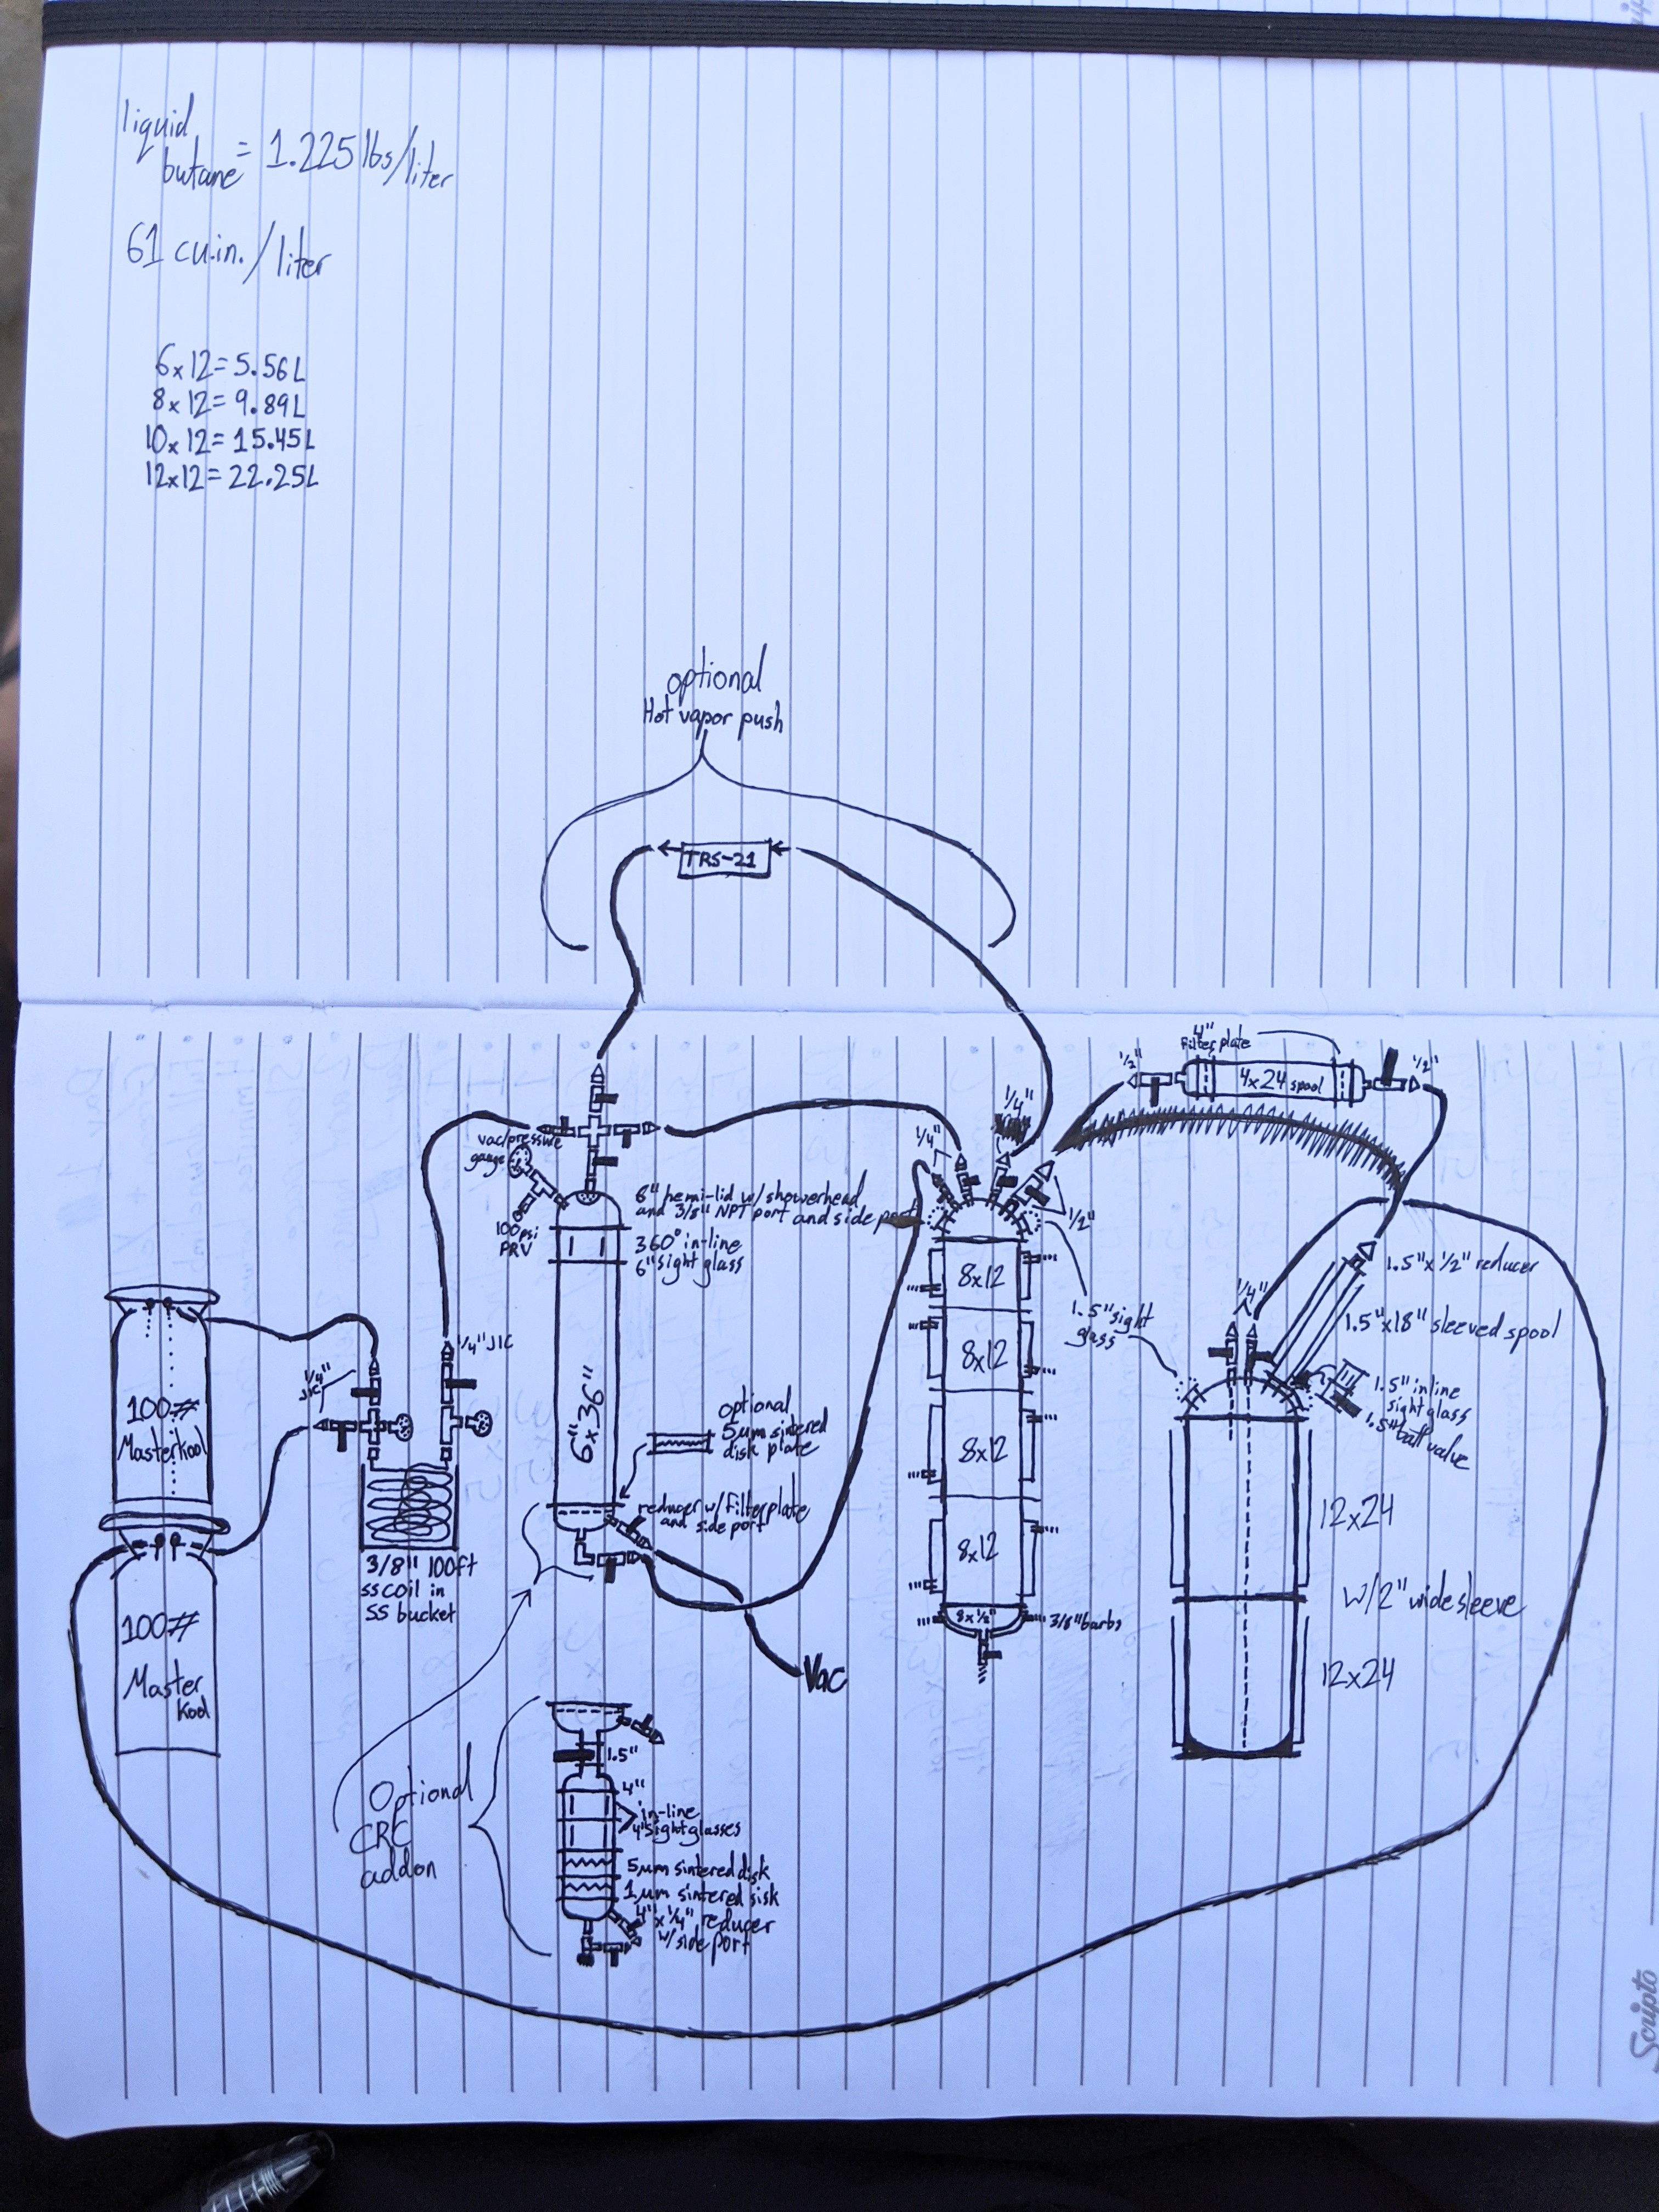 liquid
butane = 1.225 lbs/liter
61 cu.in./liter
6x12=5.56L
8x12=9.89L
10x12=15.45L
12x12=22.25L
optional
Hot vapor push
TRS-21
4"
Filter plate
1/2"
4x24 spool
1/2"
1/4"
1/4"
1/2"
vac/pressure
gauge
100psi
PRV
6" hemi-lid w/ showerhead
and 3/8" NPT port and side port
360° in-line
6" sight glass
6"x36"
optional
5μm sintered
disk plate
reducer w/ filterplate
and side port
Vac
1/4"
JIC
1/4" JIC
100#
Masterkool
100#
Master
Kool
3/8" 100ft
ss coil in
SS bucket
8x12
8x12
8x12
8x12
8x1/2"
3/8" barbs
1.5" sight
glass
1/4"
1.5"x1/2" reducer
1.5"x18" sleeved spool
1.5" inline
sight glass
1.5" ball valve
12x24
w/2" wide sleeve
12x24
Optional
CRC
addon
1.5"
4"
in-line
4" sight glasses
5μm sintered disk
1μm sintered sisk
4"x1/4" reducer
w/ side port
Scripto